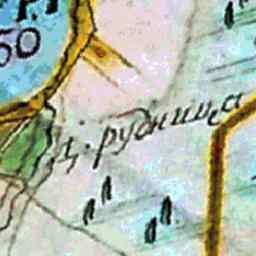 50
ц. рудница